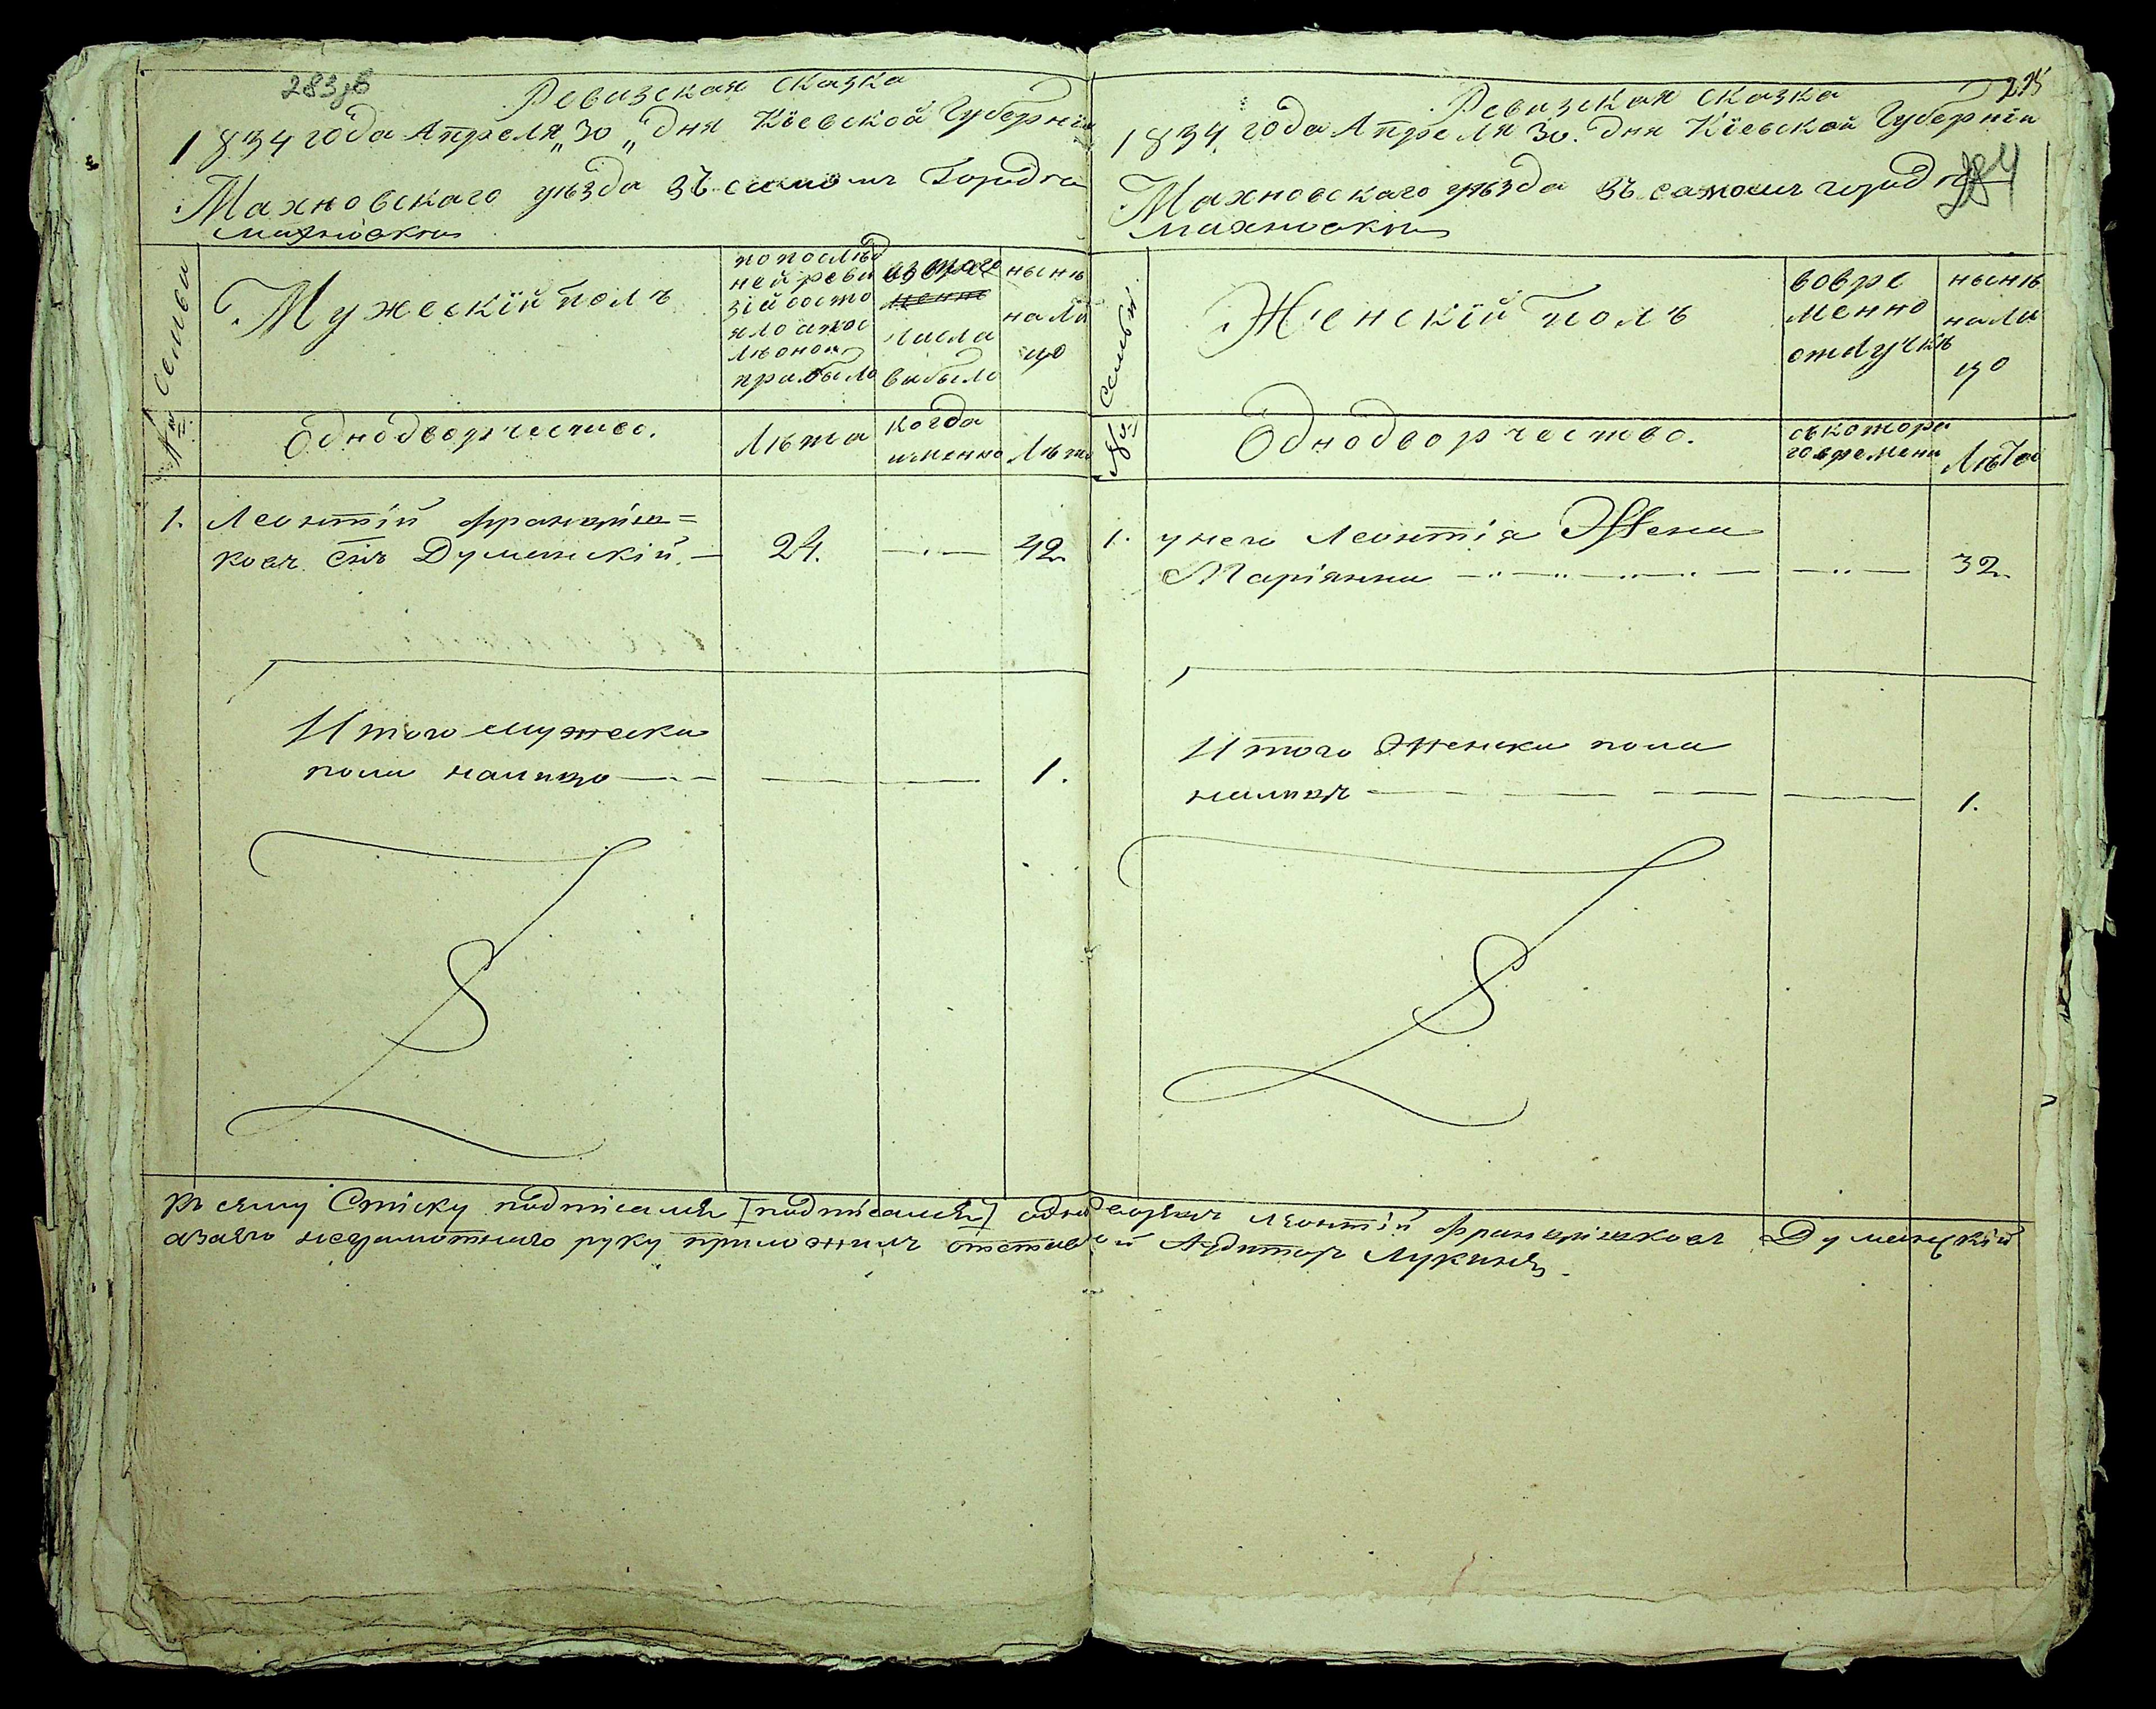 283зв
Ревизская сказка
1834 года Апреля „30„ дня Кіевской Губерніи
Махновскаго уѣзда въ самомъ Городкѣ
Махновки
№ Семьи
Мужескій полъ
по послѣд
ней реви
зіи состо
яло и пос
лѣ оной
прибыло
изъ того
числа
выбыло
нынѣ
на ли
цо
Однодворчество.
Лѣта
когда
именно
Лѣта
1.
Леонтій Францѣш=
ковъ Снъ Думанскій. —
24.
42.
Итого мужеска
пола налицо
1.
Ревизская сказка
1834 года Апреля 30. дня Кіевской Губерніи
284
Махновскаго уѣзда въ самомъ городкѣ
Махновки
№ Семьи
Женскій полъ
во вре
менно
отлучкѣ
нынѣ
на ли
цо
Однодворчество.
съ котора
го времени
Лѣта
1.
у него Леонтія Жена
Маріянна
32.
Итого Женска пола
налицо
1.
Къ сему Списку подписался [подписался] однодворецъ Леонтій Францишковъ Думанскій
а за его неграмотнаго руку приложилъ отставной Аудиторъ Лукинъ.